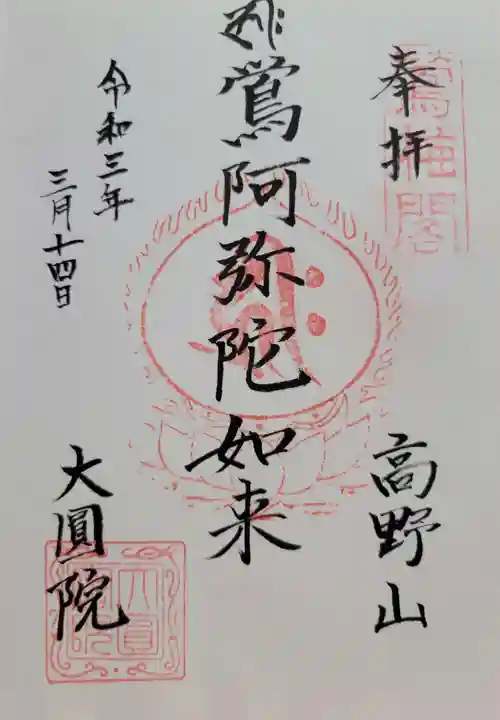 奉拝
高野山
鶯梅閣
鶯阿弥陀如来
令和三年
三月十四日
大圓院